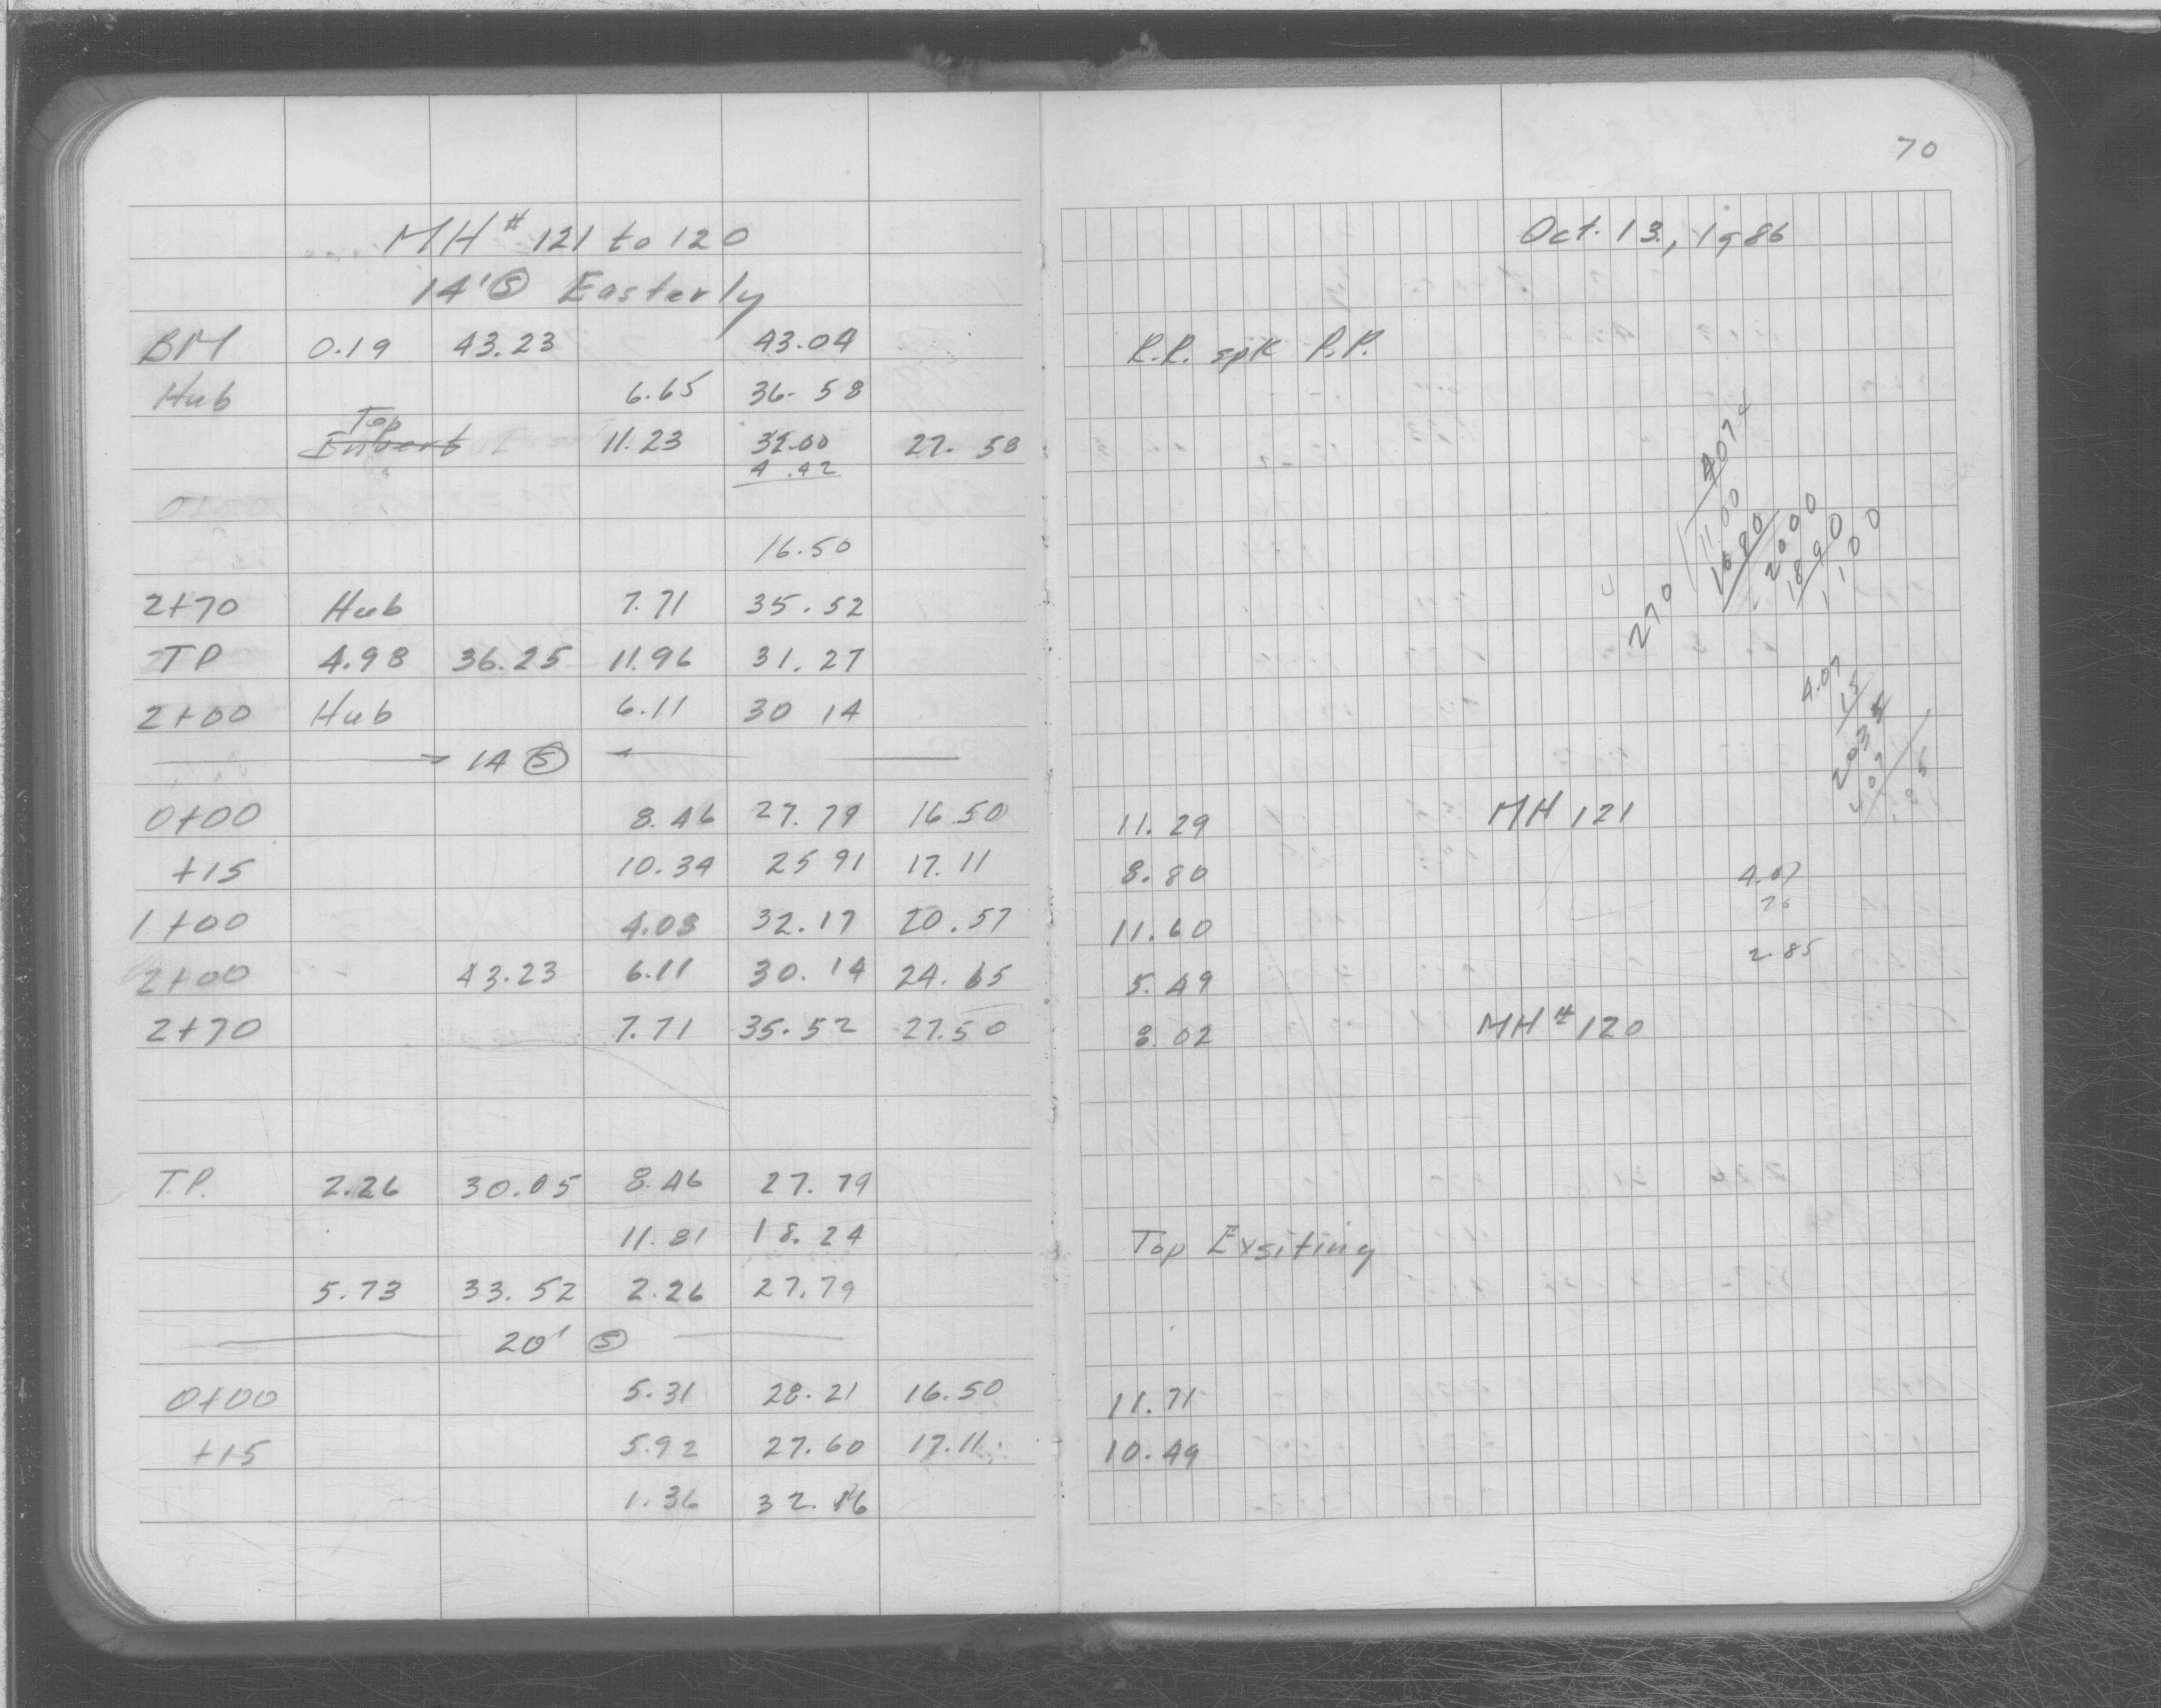 70
MH # 121 to 120
Oct. 13, 1986
14' Ⓢ Easterly
BM 0.19 43.23 43.04 R.R. spk P.P.
Hub 6.65 36.58
Top
Invert 11.23 32.00 27.58
4.42
16.50
2+70 Hub 7.71 35.52
TP 4.98 36.25 11.96 31.27
2+00 Hub 6.11 30 14
14 Ⓢ
0+00 8.46 27.79 16.50 11.29 MH 121
+15 10.34 25 91 17.11 8.80
1+00 4.08 32.17 20.57 11.60
2+00 43.23 6.11 30.14 24.65 5.49
2+70 7.71 35.52 27.50 8.02 MH # 120
T.P. 2.26 30.05 8.46 27.79
11.81 18.24 Top Exsiting
5.73 33.52 2.26 27.79
20' Ⓢ
0+00 5.31 28.21 16.50 11.71
+15 5.92 27.60 17.11 10.49
1.36 32.16
4074
270 11.00
1080
2000
1890
1100
4.07
15
2035
407
4.07
2.85